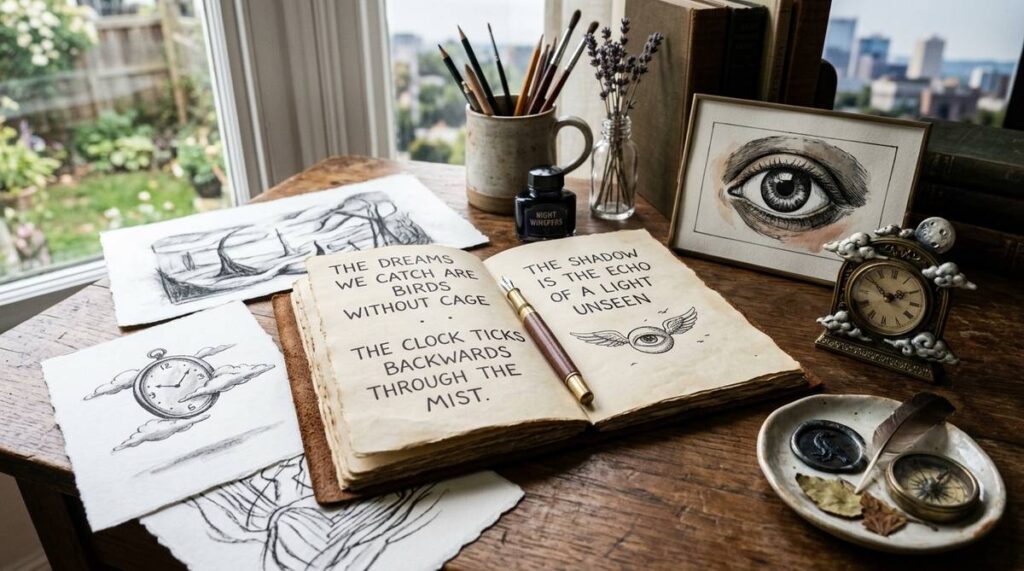 THE DREAMS
WE CATCH ARE
BIRDS
WITHOUT CAGE.
THE CLOCK TICKS
BACKWARDS
THROUGH THE
MIST.
THE SHADOW
IS THE ECHO
OF A LIGHT
UNSEEN
NIGHT
WHISPERS